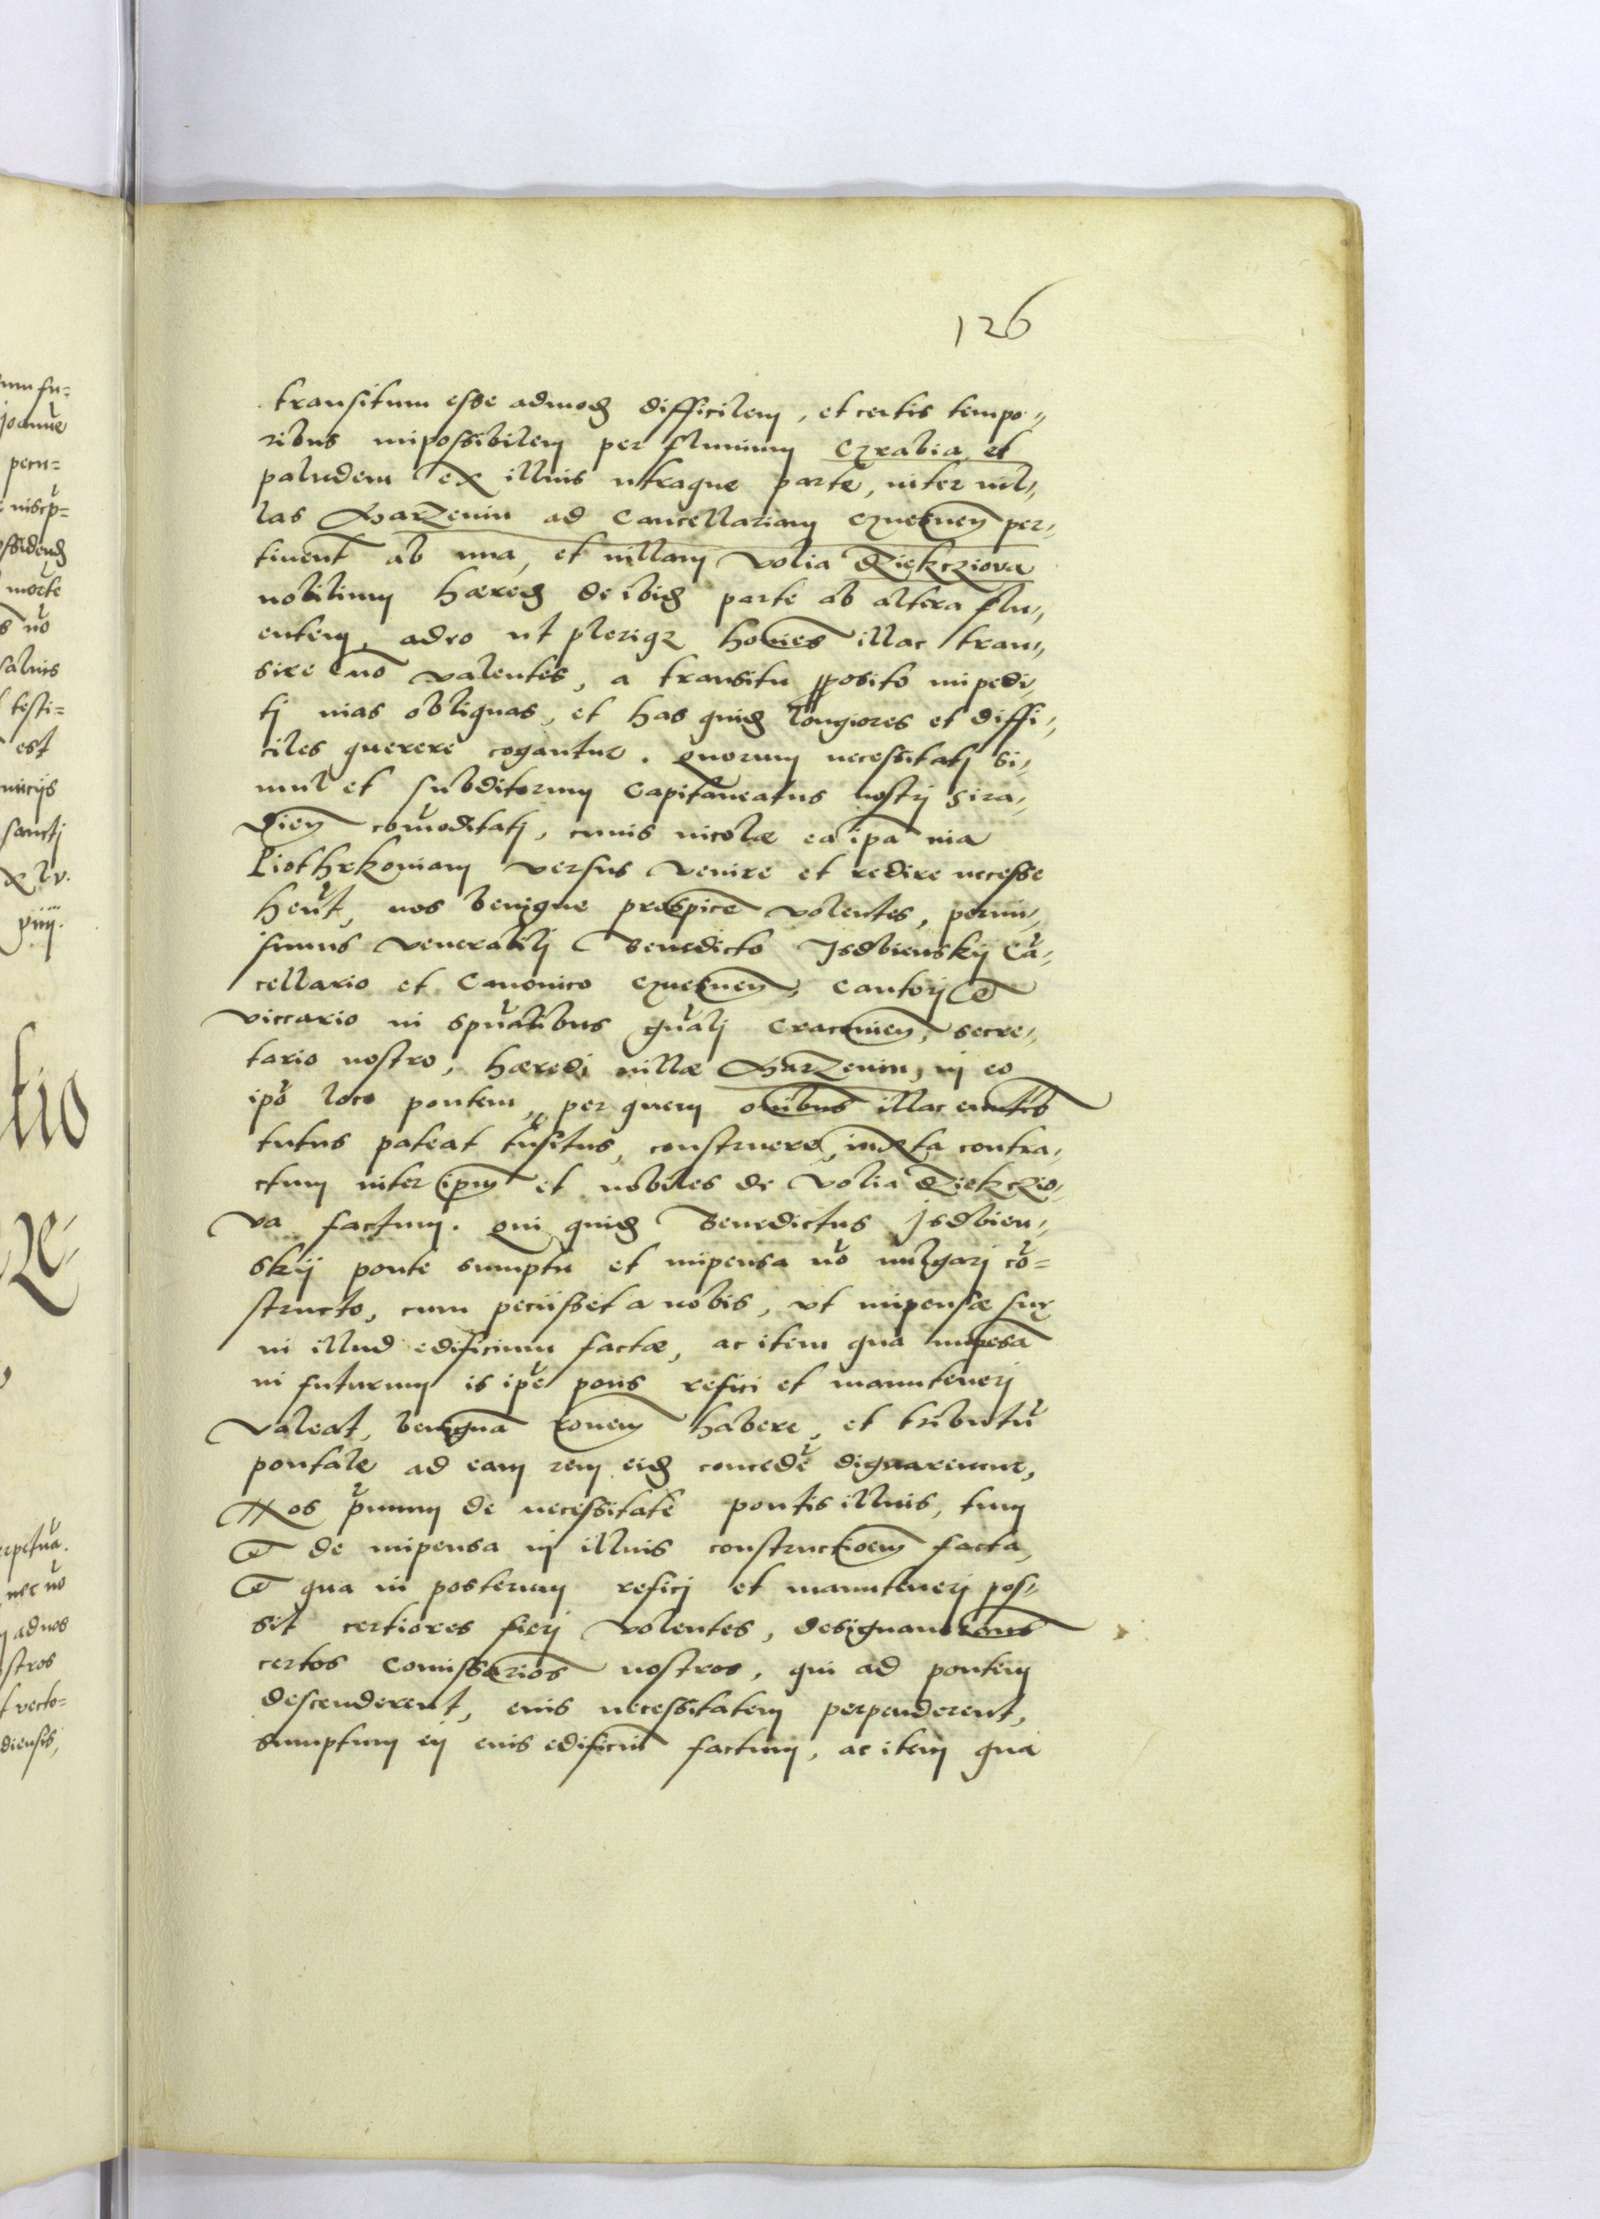 126
transitum esse admod difficilem, et certis tempo-
ribus impossibilem per fluvium Czrabia et
paludem ex illius utraque parte, inter vil-
las Marzenin ad Cancellariam Gnesnen per-
tinent ab una, et villam Volia Dziekcziova
nobilium hæred de ibid parte ab altera flu-
entem, adeo ut pleriqz hoıes illac tran-
sire no valentes, a transitu pposito impedi-
tj vias obliquas, et has quid longiores et diffi-
ciles querere cogantur. quorum necessitatj si-
mul et subditorum Capitaneatus nostrj Sira-
dien comoditatj, cuius incolæ ea ipa via
Piothrkoviam versus venire et redire necesse
hent, nos benigne prospice volentes, permi-
simus venerabilj Benedicto Isdbienskij Ca-
cellario et Canonico Gnesnen, Cantorj et
viccario in spualibus gnalj Cracovien, secre-
tario nostro, hæredi villæ Marzenin, in eo
ipo loco pontem, per quem oıbus illac euntes
tutus pateat tnsitus, construere, iuxta contra-
ctum inter ipm et nobiles de Volia Dziekczio-
va factum. qui quid Benedictus Jsdbien-
skij ponte sumptu et impensa no vulgarj co=
structo, cum peciisset a nobis, ut impensæ suæ
in illud edificium factæ, ac item qua impesa
in futurum is ipe pons refici et manutenerj
valeat, benigna roнem habere, et tributu
pontale ad eam rem eid concede dignaremur,
Nos pmum de necessitate pontis illius, tum
et de impensa in illius constructioem facta,
et qua in posterum reficj et manutenerj pos-
sit certiores fierj volentes, designavimus
certos Comissarios nostros, qui ad pontem
descenderent, eius necessitatem perpenderent,
sumptum in eius edificiu factum, ac item qua